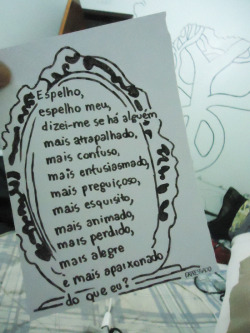 Espelho,
espelho meu,
dizei-me se há alguém
mais atrapalhado,
mais confuso,
mais entusiasmado,
mais preguiçoso,
mais esquisito,
mais animado,
mais perdido,
mais alegre
e mais apaixonado
do que eu?